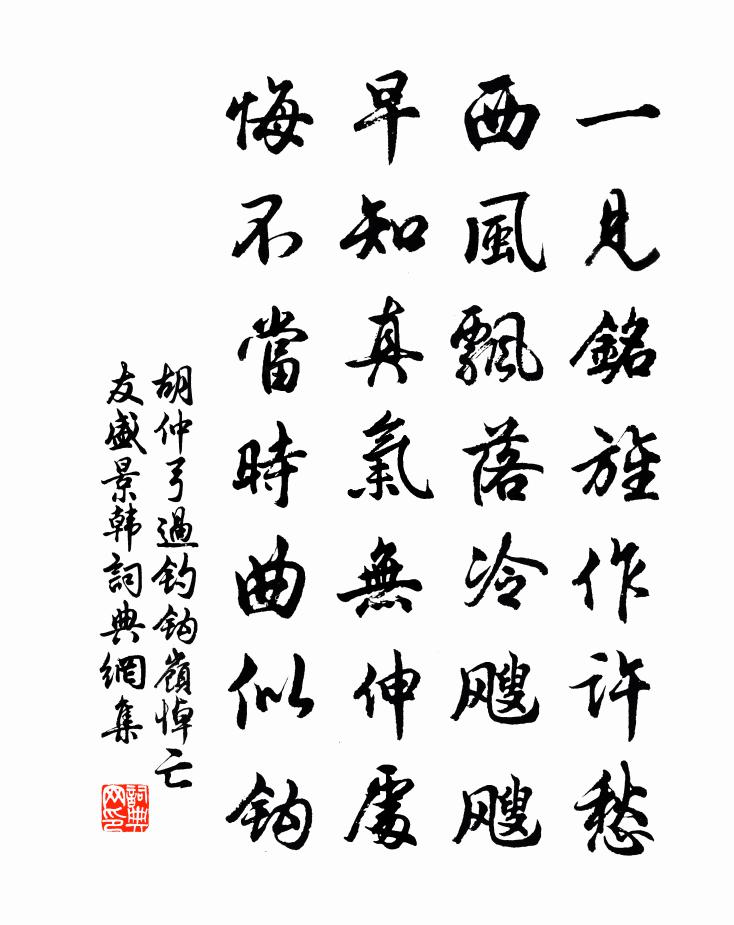 一見銘旌作許愁
西風飄落冷颼颼
早知真氣無伸處
悔不當時曲似鈎
胡仲弓過釣鈎嶺悼亡
友盛景韓詞典網集
詞典網印